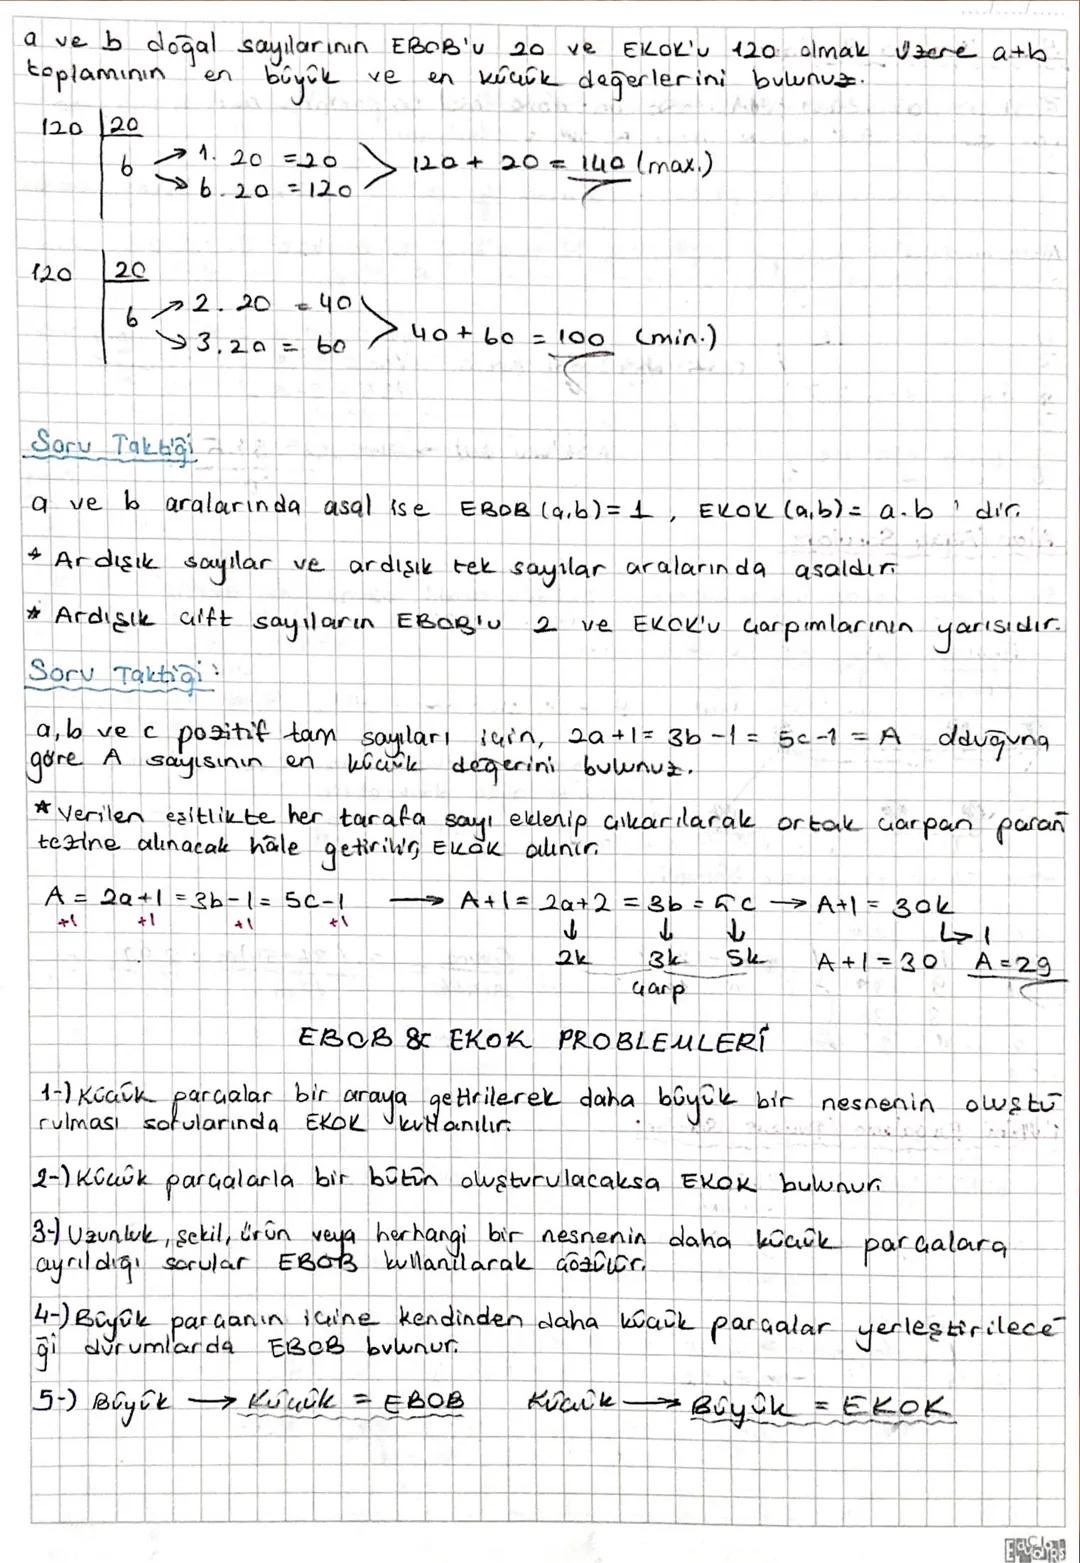 a ve b doğal sayılarının EBOB'u 20 ve EKOK'u 120 olmak üzere a+b
toplamının en büyük ve en küçük değerlerini bulunuz.
120 | 20
6 → 1. 20 = 20
→ 6. 20 = 120
120 + 20 = 140 (max.)
120 | 20
6 → 2. 20 = 40
→ 3. 20 = 60
40 + 60 = 100 (min.)
Soru Taktiği
a ve b aralarında asal ise EBOB (a,b) = 1 , EKOK (a,b) = a.b ' dir.
* Ardışık sayılar ve ardışık tek sayılar aralarında asaldır.
* Ardışık çift sayıların EBOB'u 2 ve EKOK'u çarpımlarının yarısıdır.
Soru Taktiği :
a, b ve c pozitif tam sayıları için, 2a+1 = 3b-1 = 5c-1 = A olduğuna
göre A sayısının en küçük değerini bulunuz.
* Verilen eşitlikte her tarafa sayı eklenip çıkarılarak ortak çarpan paran
tezine alınacak hâle getirilir, EKOK alınır.
A = 2a+1 = 3b-1 = 5c-1 → A+1 = 2a+2 = 3b = 5c → A+1 = 30k
+1 +1 +1 +1 ↓ ↓ ↓ ↳ 1
2k 3k 5k A+1 = 30 A = 29
çarp
EBOB & EKOK PROBLEMLERİ
1-) Küçük parçalar bir araya getirilerek daha büyük bir nesnenin oluştu
rulması sorularında EKOK kullanılır.
2-) Küçük parçalarla bir bütün oluşturulacaksa EKOK bulunur.
3-) Uzunluk, şekil, ürün veya herhangi bir nesnenin daha küçük parçalara
ayrıldığı sorular EBOB kullanılarak çözülür.
4-) Büyük parçanın içine kendinden daha küçük parçalar yerleştirilece
ği durumlarda EBOB bulunur.
5-) Büyük → Küçük = EBOB Küçük → Büyük = EKOK